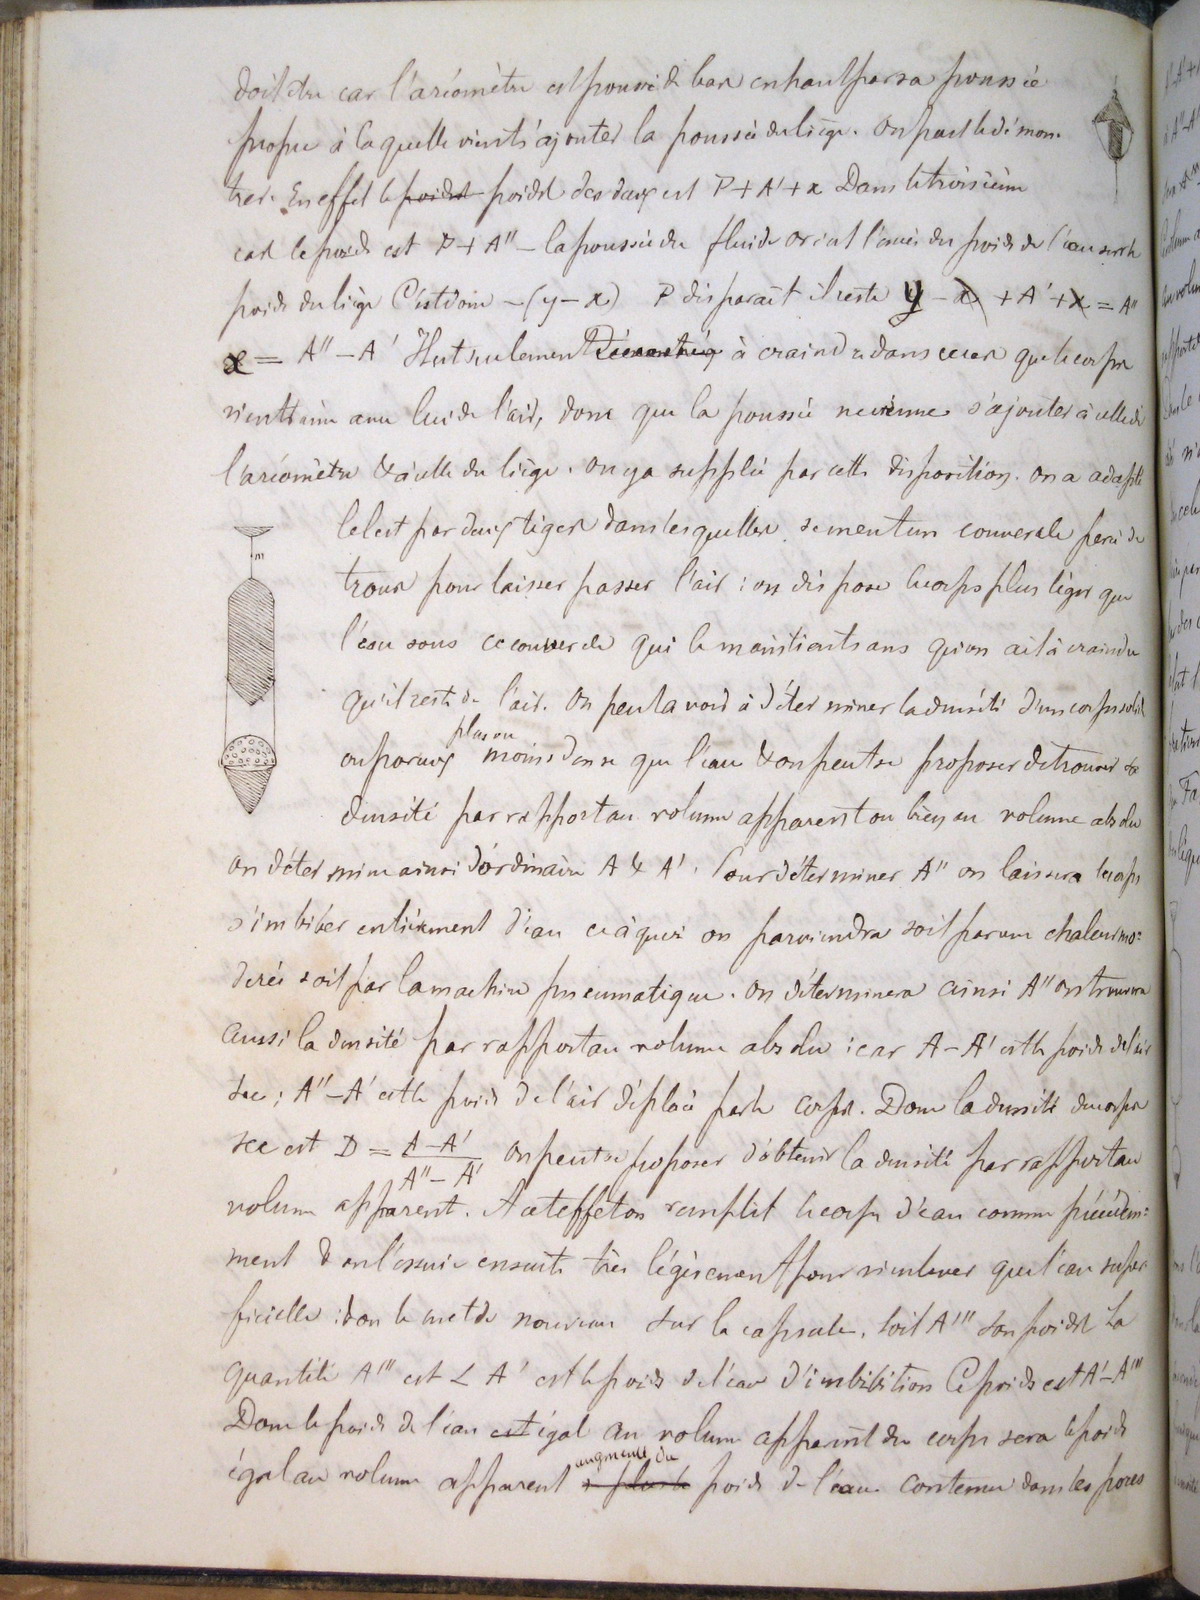 doit être car l'aréomètre est poussé de bas en haut par sa poussée
propre à laquelle vient s'ajouter la poussée du liège. On peut le démon-
trer. En effet le poids poids des deux est P + A' + x Dans le troisième
cas le poids est P + A'' – la poussée du fluide or c'est l'excès du poids de l'eau sur le
poids du liège C'est donc – (y – x) P disparaît il reste y – x + A' + x = A''
x = A'' – A' Il est seulement à craindre dans ce cas que le corps
vienne avec lui de l'air, donc que la poussée ne vienne s'ajouter à celle de
l'aréomètre & à celle du liège. On y a suppléé par cette disposition. on a adapté
le lest par deux tiges dans lesquelles se meut un couvercle percé de
trous pour laisser passer l'air : on dispose le corps plus léger que
l'eau sous ce couvercle qui le maintient sans qu'on ait à craindre
qu'il reste de l'air. On peut avoir à déterminer la densité d'un corps solide
m
ou poreux plus ou moins dense que l'eau & on peut se proposer de trouver sa
densité par rapport au volume apparent ou bien au volume absolu
on détermine ainsi d'ordinaire A & A'. Pour déterminer A'' on laissera le corps
s'imbiber entièrement d'eau ce à quoi on parviendra soit par une chaleur mo=
dérée soit par la machine pneumatique. On déterminera ainsi A'' on trouvera
aussi la densité par rapport au volume absolu : car A – A' est le poids de l'air
sec ; A'' – A' est le poids de l'air déplacé par le corps. Donc la densité du corps
sec est D = A – A' / A'' – A' On peut se proposer d'obtenir la densité par rapport au
volume apparent. A cet effet on remplit le corps d'eau comme précédem=
ment & on l'essuie ensuite très légèrement pour n'enlever que l'eau super
ficielle : & on le met de nouveau sur la capsule. Soit A''' son poids La
quantité A''' est < A' est le poids de l'eau d'imbibition Ce poids est A' – A'''
Donc le poids de l'eau est égal au volume apparent du corps sera le poids
égal au volume apparent augmenté du poids de l'eau contenue dans les pores